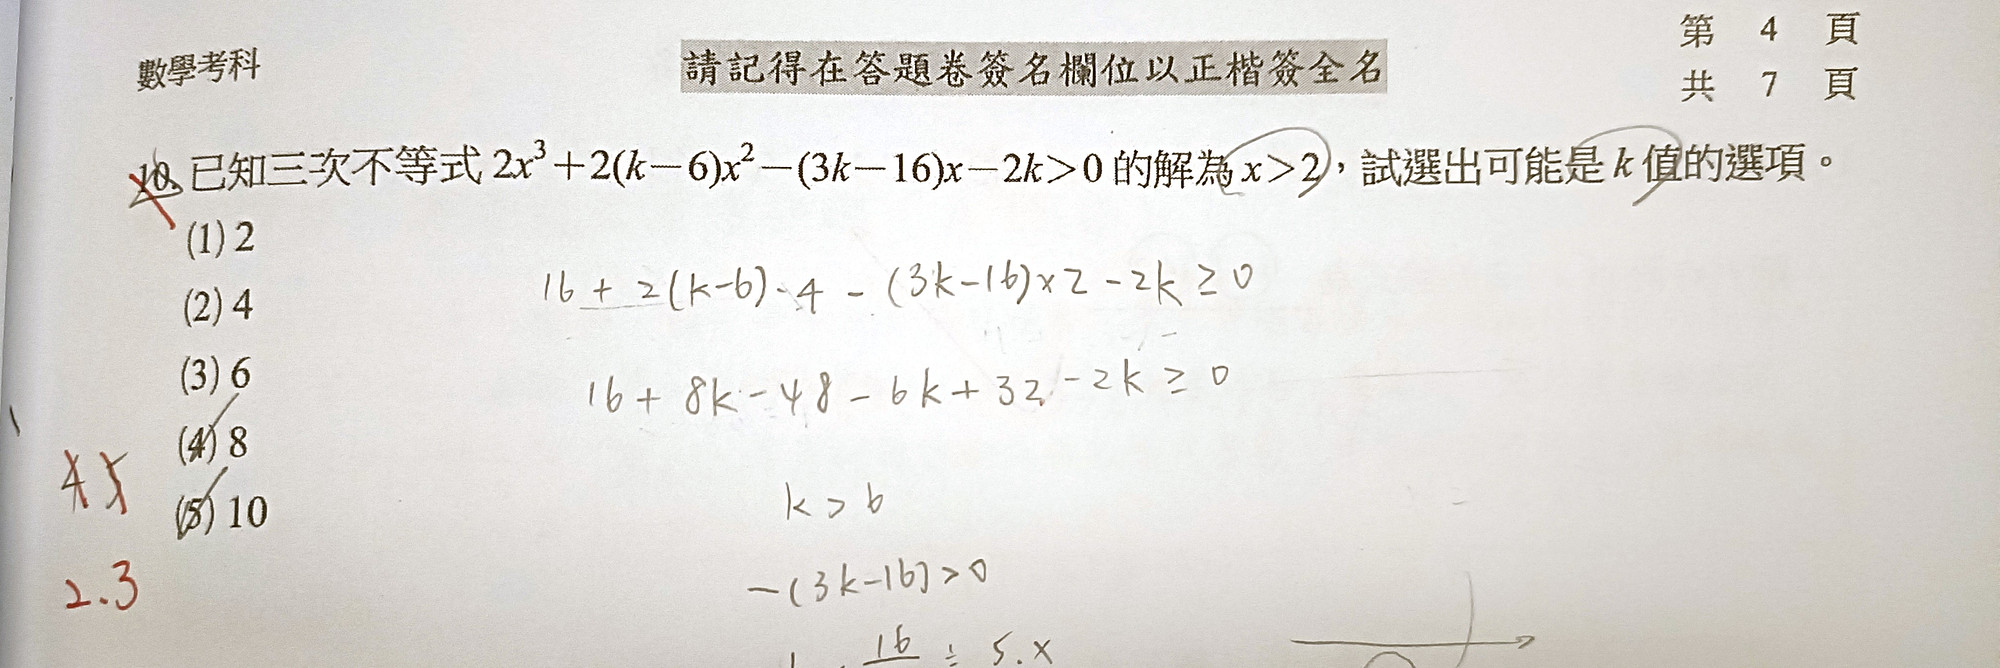 第 4 頁
數學考科
請記得在答題卷簽名欄位以正楷簽全名
共 7 頁
10. 已知三次不等式 2x³+2(k−6)x²−(3k−16)x−2k>0 的解為 x>2，試選出可能是 k 值的選項。
(1) 2
(2) 4
(3) 6
(4) 8
(5) 10
16 + 2(k-6)·4 - (3k-16)×2 - 2k ≥ 0
16 + 8k - 48 - 6k + 32 - 2k ≥ 0
k > 6
4 5
-(3k-16) > 0
2.3
16 ÷ 5.x